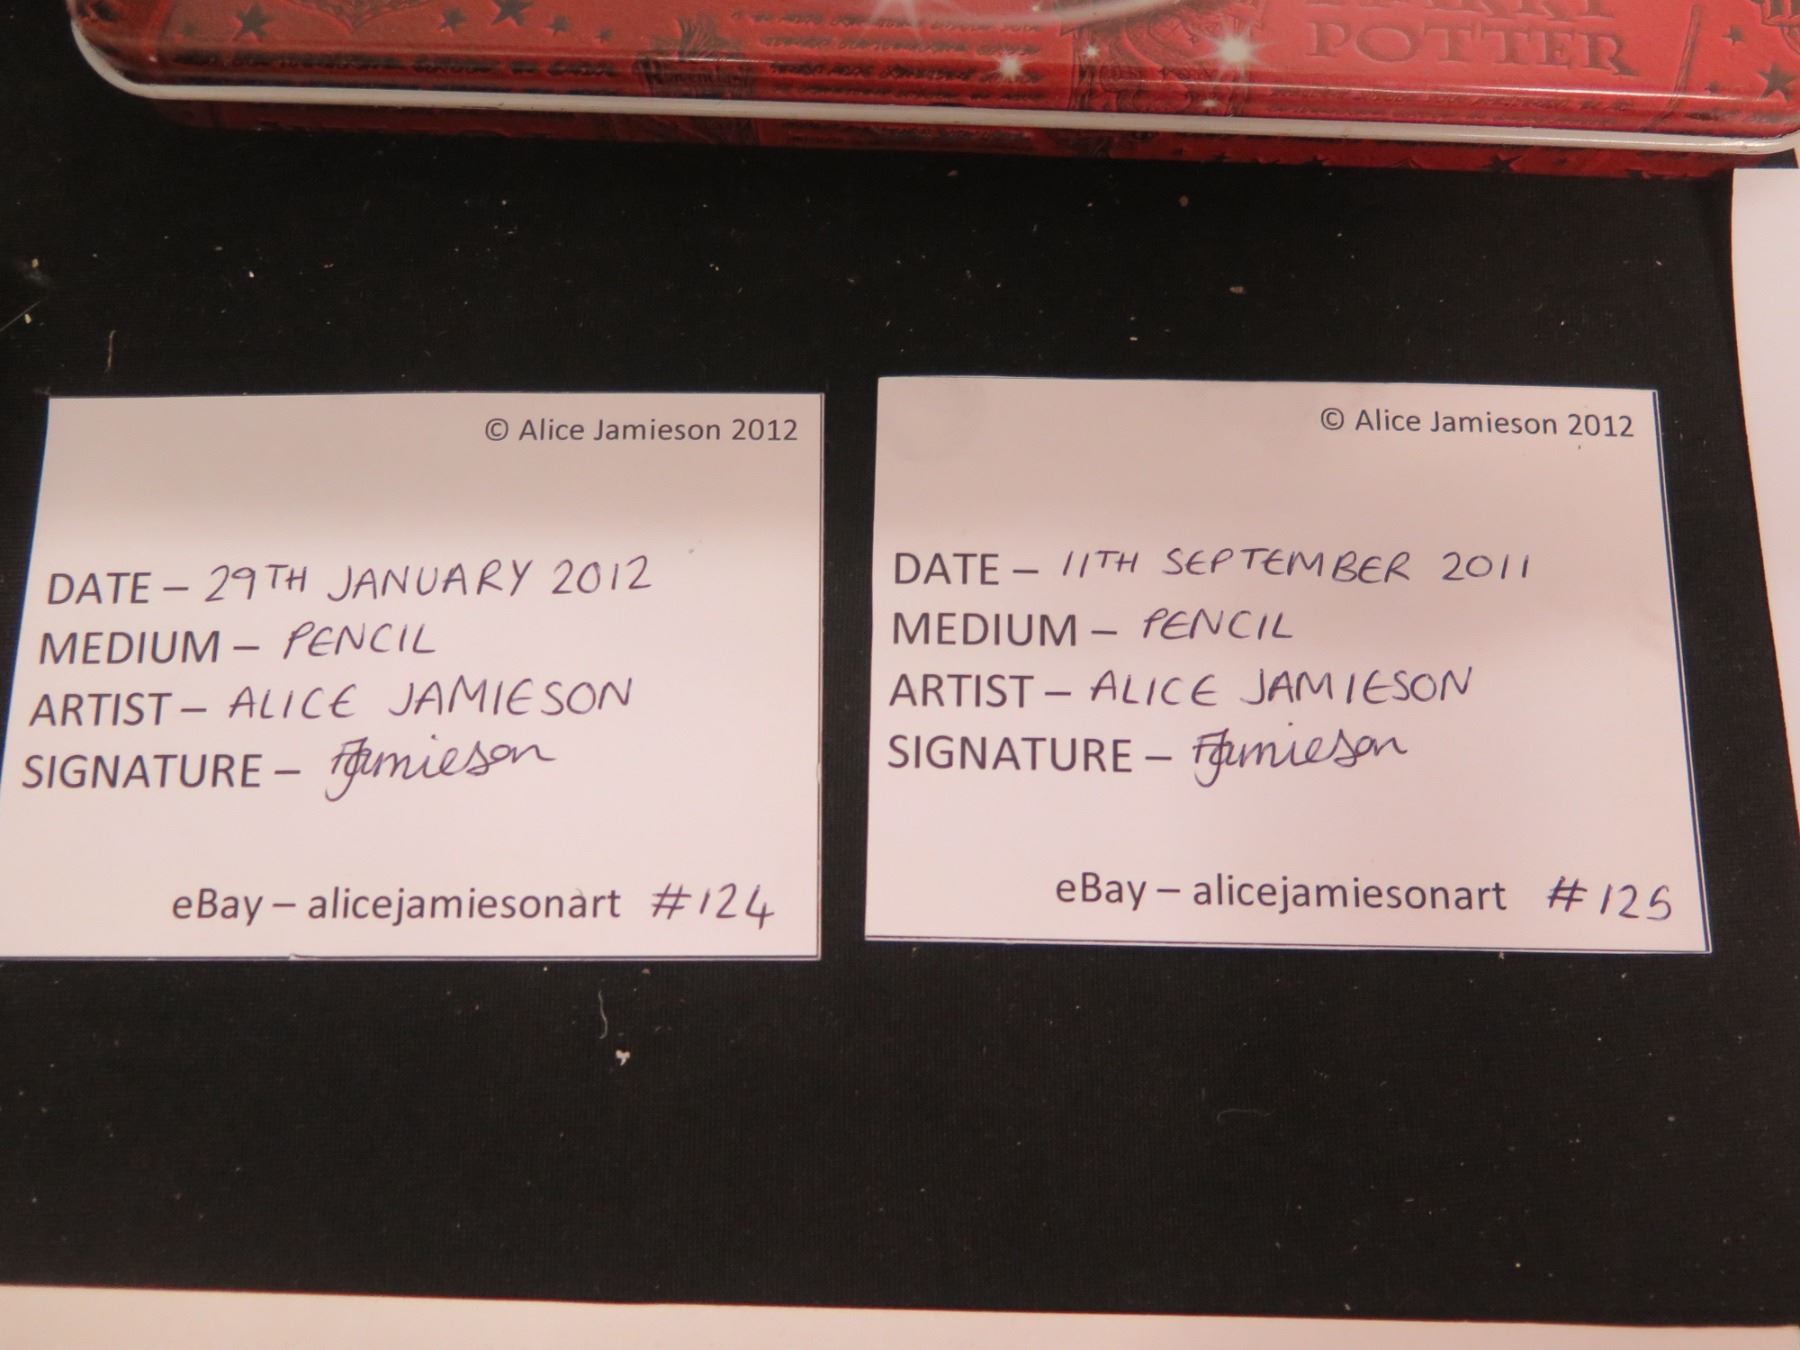 POTTER
© Alice Jamieson 2012
DATE – 29TH JANUARY 2012
MEDIUM – PENCIL
ARTIST – ALICE JAMIESON
SIGNATURE – AJamieson
eBay – alicejamiesonart #124
© Alice Jamieson 2012
DATE – 11TH SEPTEMBER 2011
MEDIUM – PENCIL
ARTIST – ALICE JAMIESON
SIGNATURE – AJamieson
eBay – alicejamiesonart #125